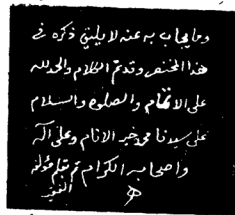 وما يجاب به عنه لا يليق ذكره في
هذا المختصر وقد تم الكلام والحمد لله
على الاتمام والصلوة والسلام
على سيدنا محمد خير الانام وعلى آله
واصحابه الكرام تم بقلم مؤلفه
الفقير